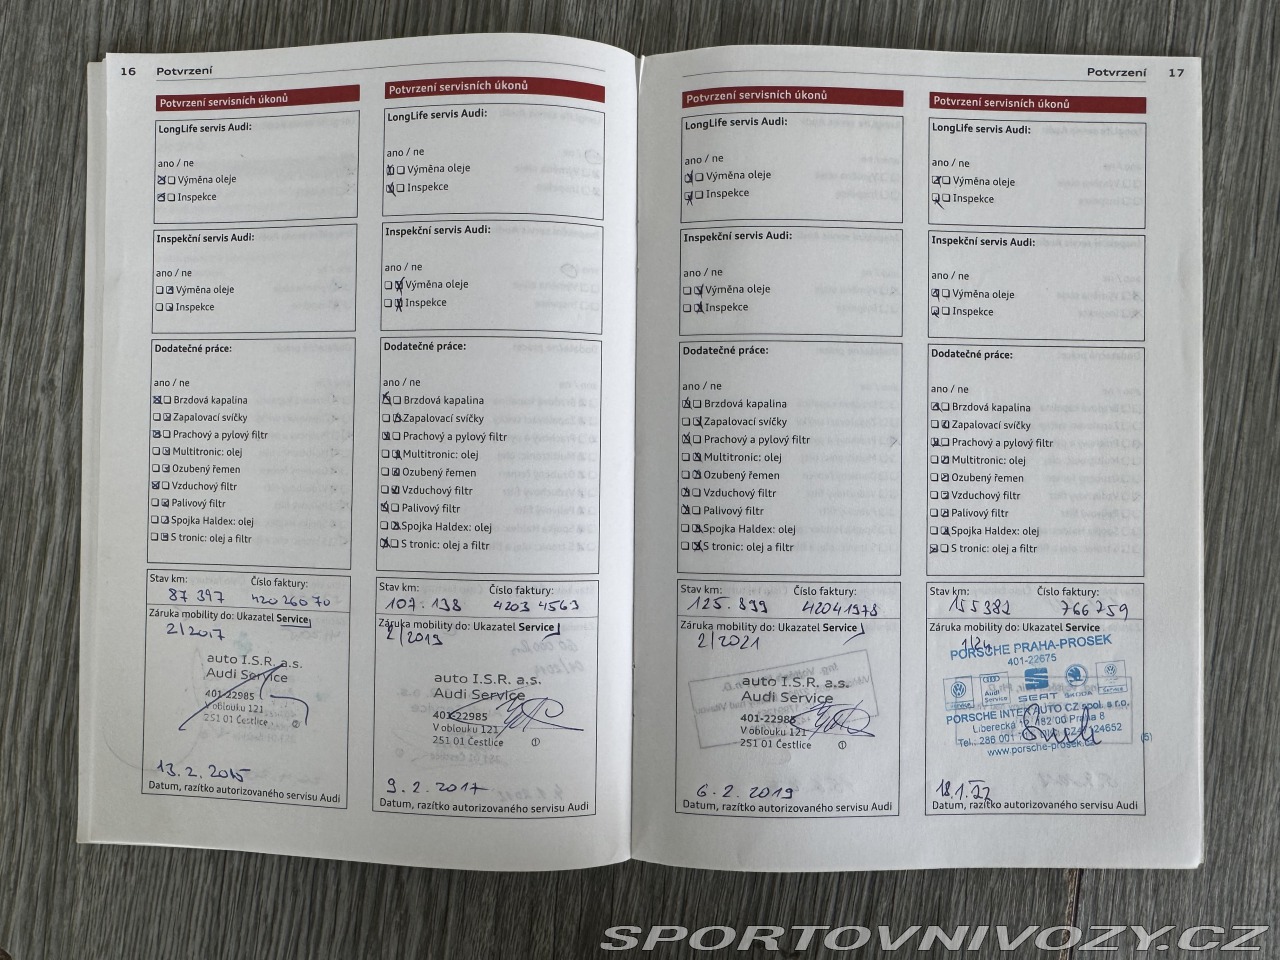 16 Potvrzení
Potvrzení servisních úkonů
LongLife servis Audi:
ano / ne
Výměna oleje
Inspekce
Inspekční servis Audi:
ano / ne
Výměna oleje
Inspekce
Dodatečné práce:
ano / ne
Brzdová kapalina
Zapalovací svíčky
Prachový a pylový filtr
Multitronic: olej
Ozubený řemen
Vzduchový filtr
Palivový filtr
Spojka Haldex: olej
S tronic: olej a filtr
Stav km: Číslo faktury:
87 397 42026070
Záruka mobility do: Ukazatel Service
2/2017
auto I.S.R. a.s.
Audi Service
401-22985
V oblouku 121
251 01 Čestlice
13.2.2015
Datum, razítko autorizovaného servisu Audi
Potvrzení servisních úkonů
LongLife servis Audi:
ano / ne
Výměna oleje
Inspekce
Inspekční servis Audi:
ano / ne
Výměna oleje
Inspekce
Dodatečné práce:
ano / ne
Brzdová kapalina
Zapalovací svíčky
Prachový a pylový filtr
Multitronic: olej
Ozubený řemen
Vzduchový filtr
Palivový filtr
Spojka Haldex: olej
S tronic: olej a filtr
Stav km: Číslo faktury:
107.138 4203 4563
Záruka mobility do: Ukazatel Service
2/2019
auto I.S.R. a.s.
Audi Service
401-22985
V oblouku 121
251 01 Čestlice
9.2.2017
Datum, razítko autorizovaného servisu Audi
Potvrzení 17
Potvrzení servisních úkonů
LongLife servis Audi:
ano / ne
Výměna oleje
Inspekce
Inspekční servis Audi:
ano / ne
Výměna oleje
Inspekce
Dodatečné práce:
ano / ne
Brzdová kapalina
Zapalovací svíčky
Prachový a pylový filtr
Multitronic: olej
Ozubený řemen
Vzduchový filtr
Palivový filtr
Spojka Haldex: olej
S tronic: olej a filtr
Stav km: Číslo faktury:
125.899 42041978
Záruka mobility do: Ukazatel Service
2/2021
auto I.S.R. a.s.
Audi Service
401-22985
V oblouku 121
251 01 Čestlice
6.2.2019
Datum, razítko autorizovaného servisu Audi
Potvrzení servisních úkonů
LongLife servis Audi:
ano / ne
Výměna oleje
Inspekce
Inspekční servis Audi:
ano / ne
Výměna oleje
Inspekce
Dodatečné práce:
ano / ne
Brzdová kapalina
Zapalovací svíčky
Prachový a pylový filtr
Multitronic: olej
Ozubený řemen
Vzduchový filtr
Palivový filtr
Spojka Haldex: olej
S tronic: olej a filtr
Stav km: Číslo faktury:
155382 766259
Záruka mobility do: Ukazatel Service
1/24
PORSCHE PRAHA-PROSEK
401-22675
Audi Service SEAT ŠKODA Service
PORSCHE INTER AUTO CZ spol. s r.o.
Liberecká 12, 182 00 Praha 8
Tel.: 286 001
www.porsche-prosek.cz
18.1.22
Datum, razítko autorizovaného servisu Audi
SPORTOVNIVOZY.CZ